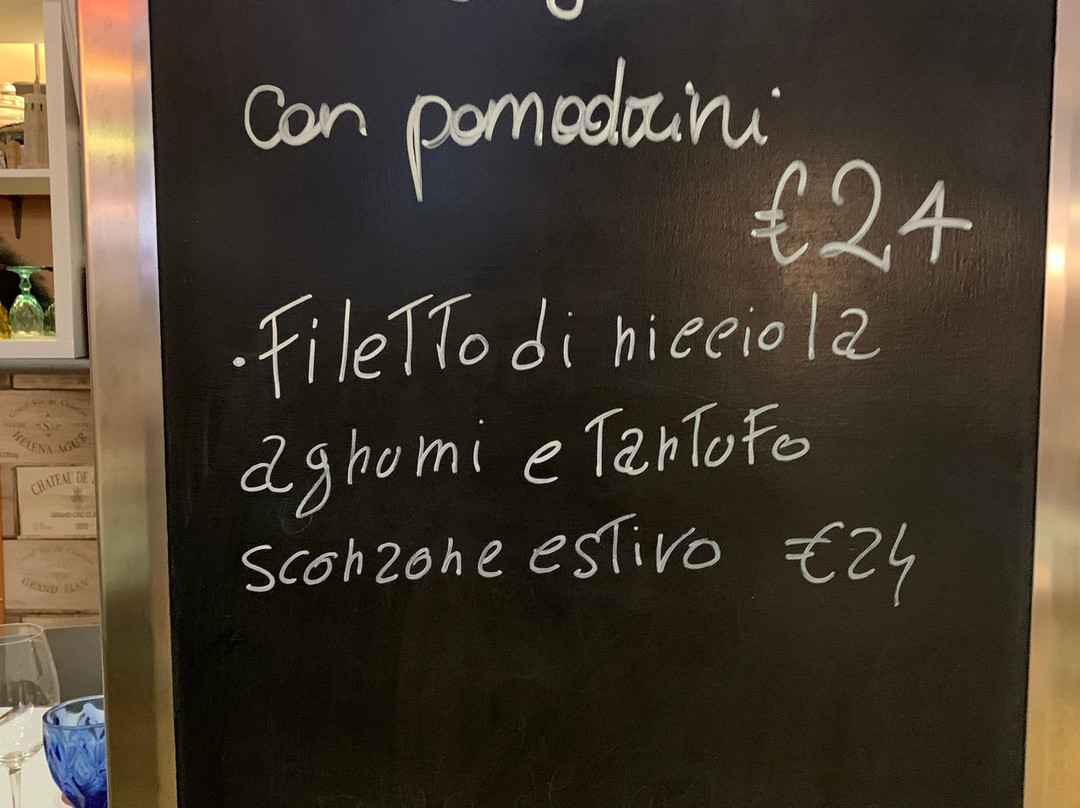 con pomodorini
€24
• Filetto di ricciola
agrumi e Tartufo
scorzone estivo €24
HELENA-AGUR
CHATEAU DE
GRAND CRU
005
GRAND ELAN